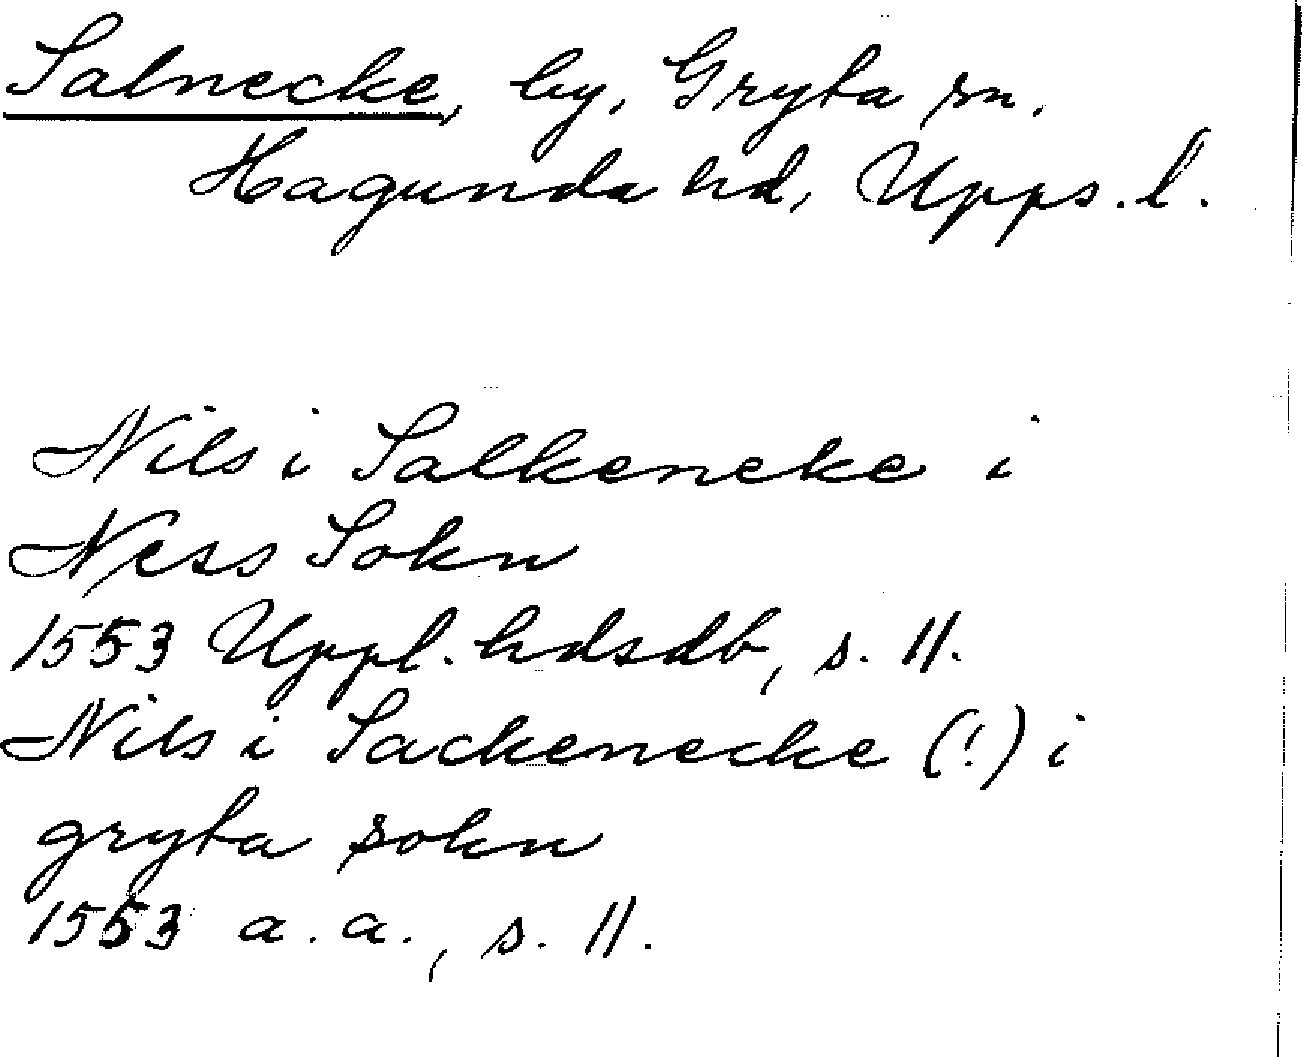 Salnecke, by, Gryta sn.
Hagunda hd, Upps. l.
Nils i Salkeneke i
Ness Sokn
1553 Uppl. hdsdb, s. 11.
Nils i Sackenecke (!) i
gryta sokn
1553 a. a., s. 11.